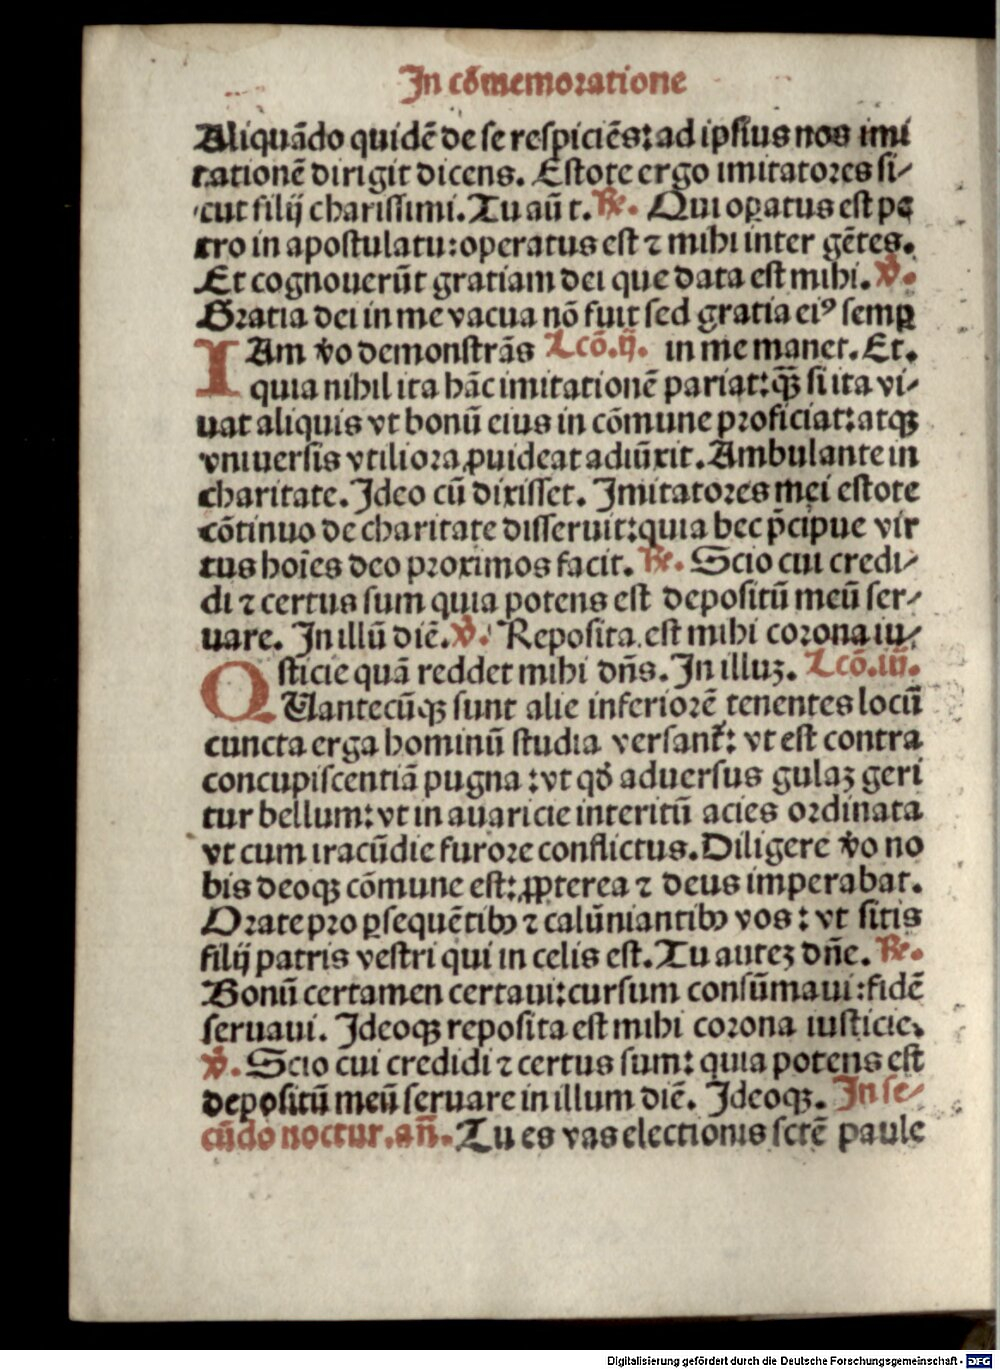 In cõmemoratione
Aliquãdo quidẽ de se respiciẽs: ad ipsius nos imi
tationẽ dirigit dicens. Estote ergo imitatores si⸗
cut filij charissimi. Tu aũt. ℞. Qui oꝑatus est pe
tro in apostulatu: operatus est ⁊ mihi inter gẽtes.
Et cognouerũt gratiam dei que data est mihi. ℣.
Gratia dei in me vacua nõ fuit sed gratia eiꝰ semꝑ
IAm v̊o demonstrãs Lcõ.ij. in me manet. Et.
quia nihil ita hãc imitationẽ pariat: qꝫ̃ si ita vi⸗
uat aliquis vt bonũ eius in cõmune proficiat: atqꝫ
vniuersis vtiliora ꝓuideat adiũxit. Ambulante in
charitate. Ideo cũ dixisset. Imitatores mei estote
cõtinuo de charitate disseruit: quia hec p̃cipue vir
tus hoĩes deo proximos facit. ℞. Scio cui credi⸗
di ⁊ certus sum quia potens est depositũ meũ ser⸗
uare. In illũ diẽ. ℣. Reposita est mihi corona iu⸗
sticie quã reddet mihi dñs. In illuꝫ. Lcõ.iij.
QUantecũqꝫ sunt alie inferiorẽ tenentes locũ
cuncta erga hominũ studia versant᷑: vt est contra
concupiscentiã pugna: vt qđ aduersus gulaꝫ geri
tur bellum: vt in auaricie interitũ acies ordinata
vt cum iracũdie furore conflictus. Diligere v̊o no
bis deoqꝫ cõmune est: ꝓpterea ⁊ deus imperabat.
Orate pro ꝑsequẽtibꝫ ⁊ calũniantibꝫ vos: vt sitis
filij patris vestri qui in celis est. Tu auteꝫ dñe. ℞.
Bonũ certamen certaui: cursum consũmaui: fidẽ
seruaui. Ideoqꝫ reposita est mihi corona iusticie.
℣. Scio cui credidi ⁊ certus sum: quia potens est
depositũ meũ seruare in illum diẽ. Ideoqꝫ. In se⸗
cũdo noctur. añ. Tu es vas electionis sctẽ paule
Digitalisierung gefördert durch die Deutsche Forschungsgemeinschaft - DFG